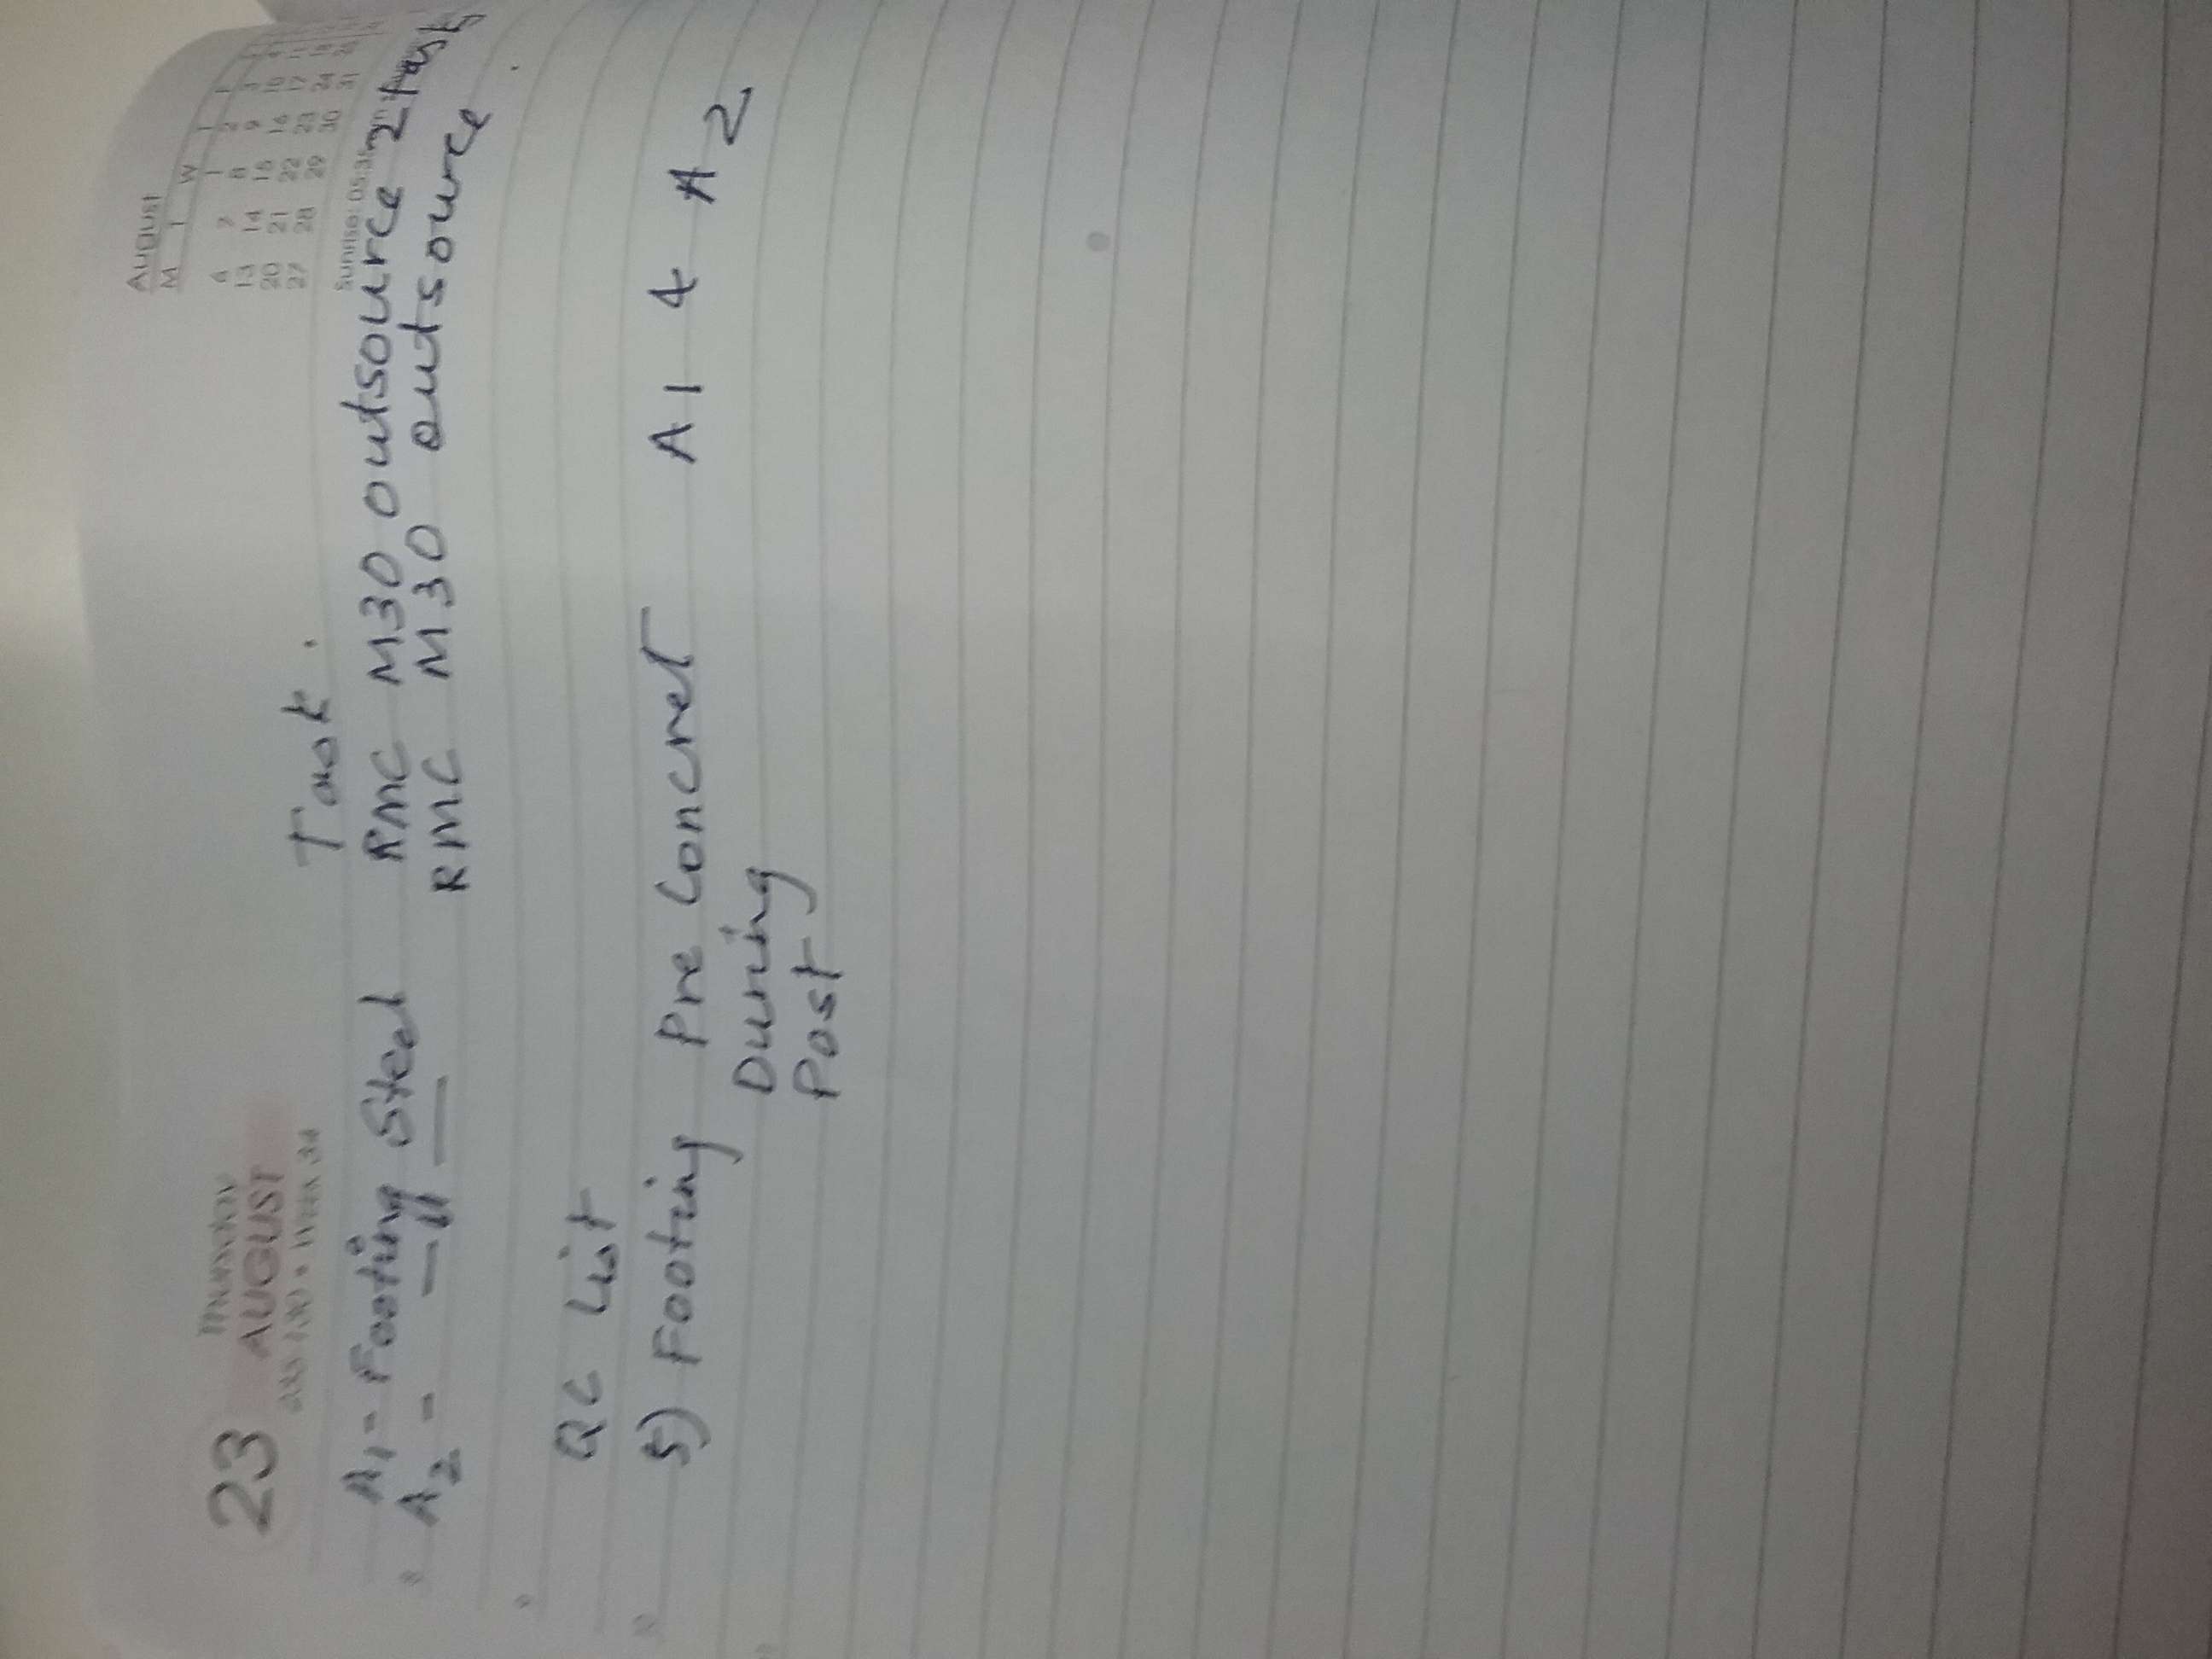 23 THURSDAY
AUGUST
August
M T W T F
1 2 3
6 7 8 9 10
13 14 15 16 17
20 21 22 23 24
27 28 29 30 31
Task.
A1 - Footing Steel RMC M30 outsource 2 task
A2 - —〃— RMC M30 outsource
QC List
5) Footing Pre Concret A1 & A2
During
Post